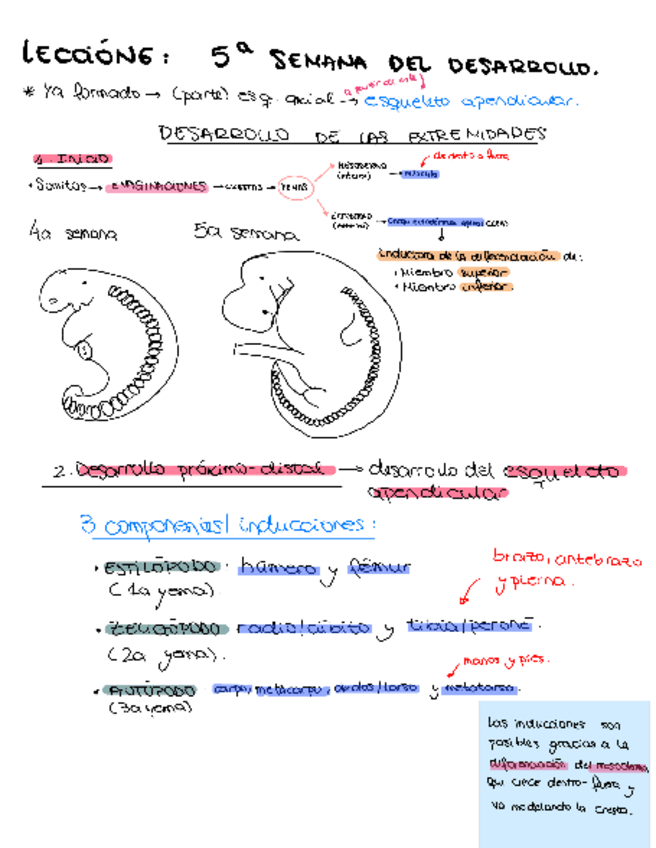 LECCIÓN 6: 5ª SEMANA DEL DESARROLLO.
* Ya formado → (parte) esq. axial → esqueleto apendicular.
DESARROLLO DE LAS EXTREMIDADES
1. INICIO
de dentro a fuera
MESODERMO
(interno) → músculo
• Somitas → EVAGINACIONES → CRESTAS → YEMAS
ECTODERMO
(externo) → cresta ectodérmica apical
4a semana
5a semana
inductora de la diferenciación de:
• Miembro superior
• Miembro inferior.
2. Desarrollo próximo-distal → desarrollo del esqueleto
apendicular
3 componentes/ inducciones:
• ESTILÓPODO húmero y fémur
(1a yema).
brazo, antebrazo
y pierna.
• ZEUGÓPODO radio/cúbito y tibia/peroné.
(2a yema).
manos y pies.
• AUTÓPODO carpo, metacarpo, dedos/tarso y metatarso.
(3a yema)
Las inducciones son
posibles gracias a la
diferenciación del mesodermo,
que crece dentro-fuera y
va modelando la cresta.